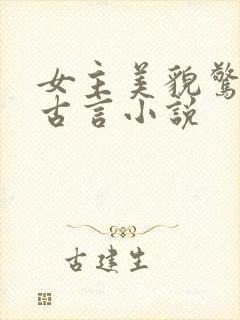 女主美貌驚
古言小説
古建生